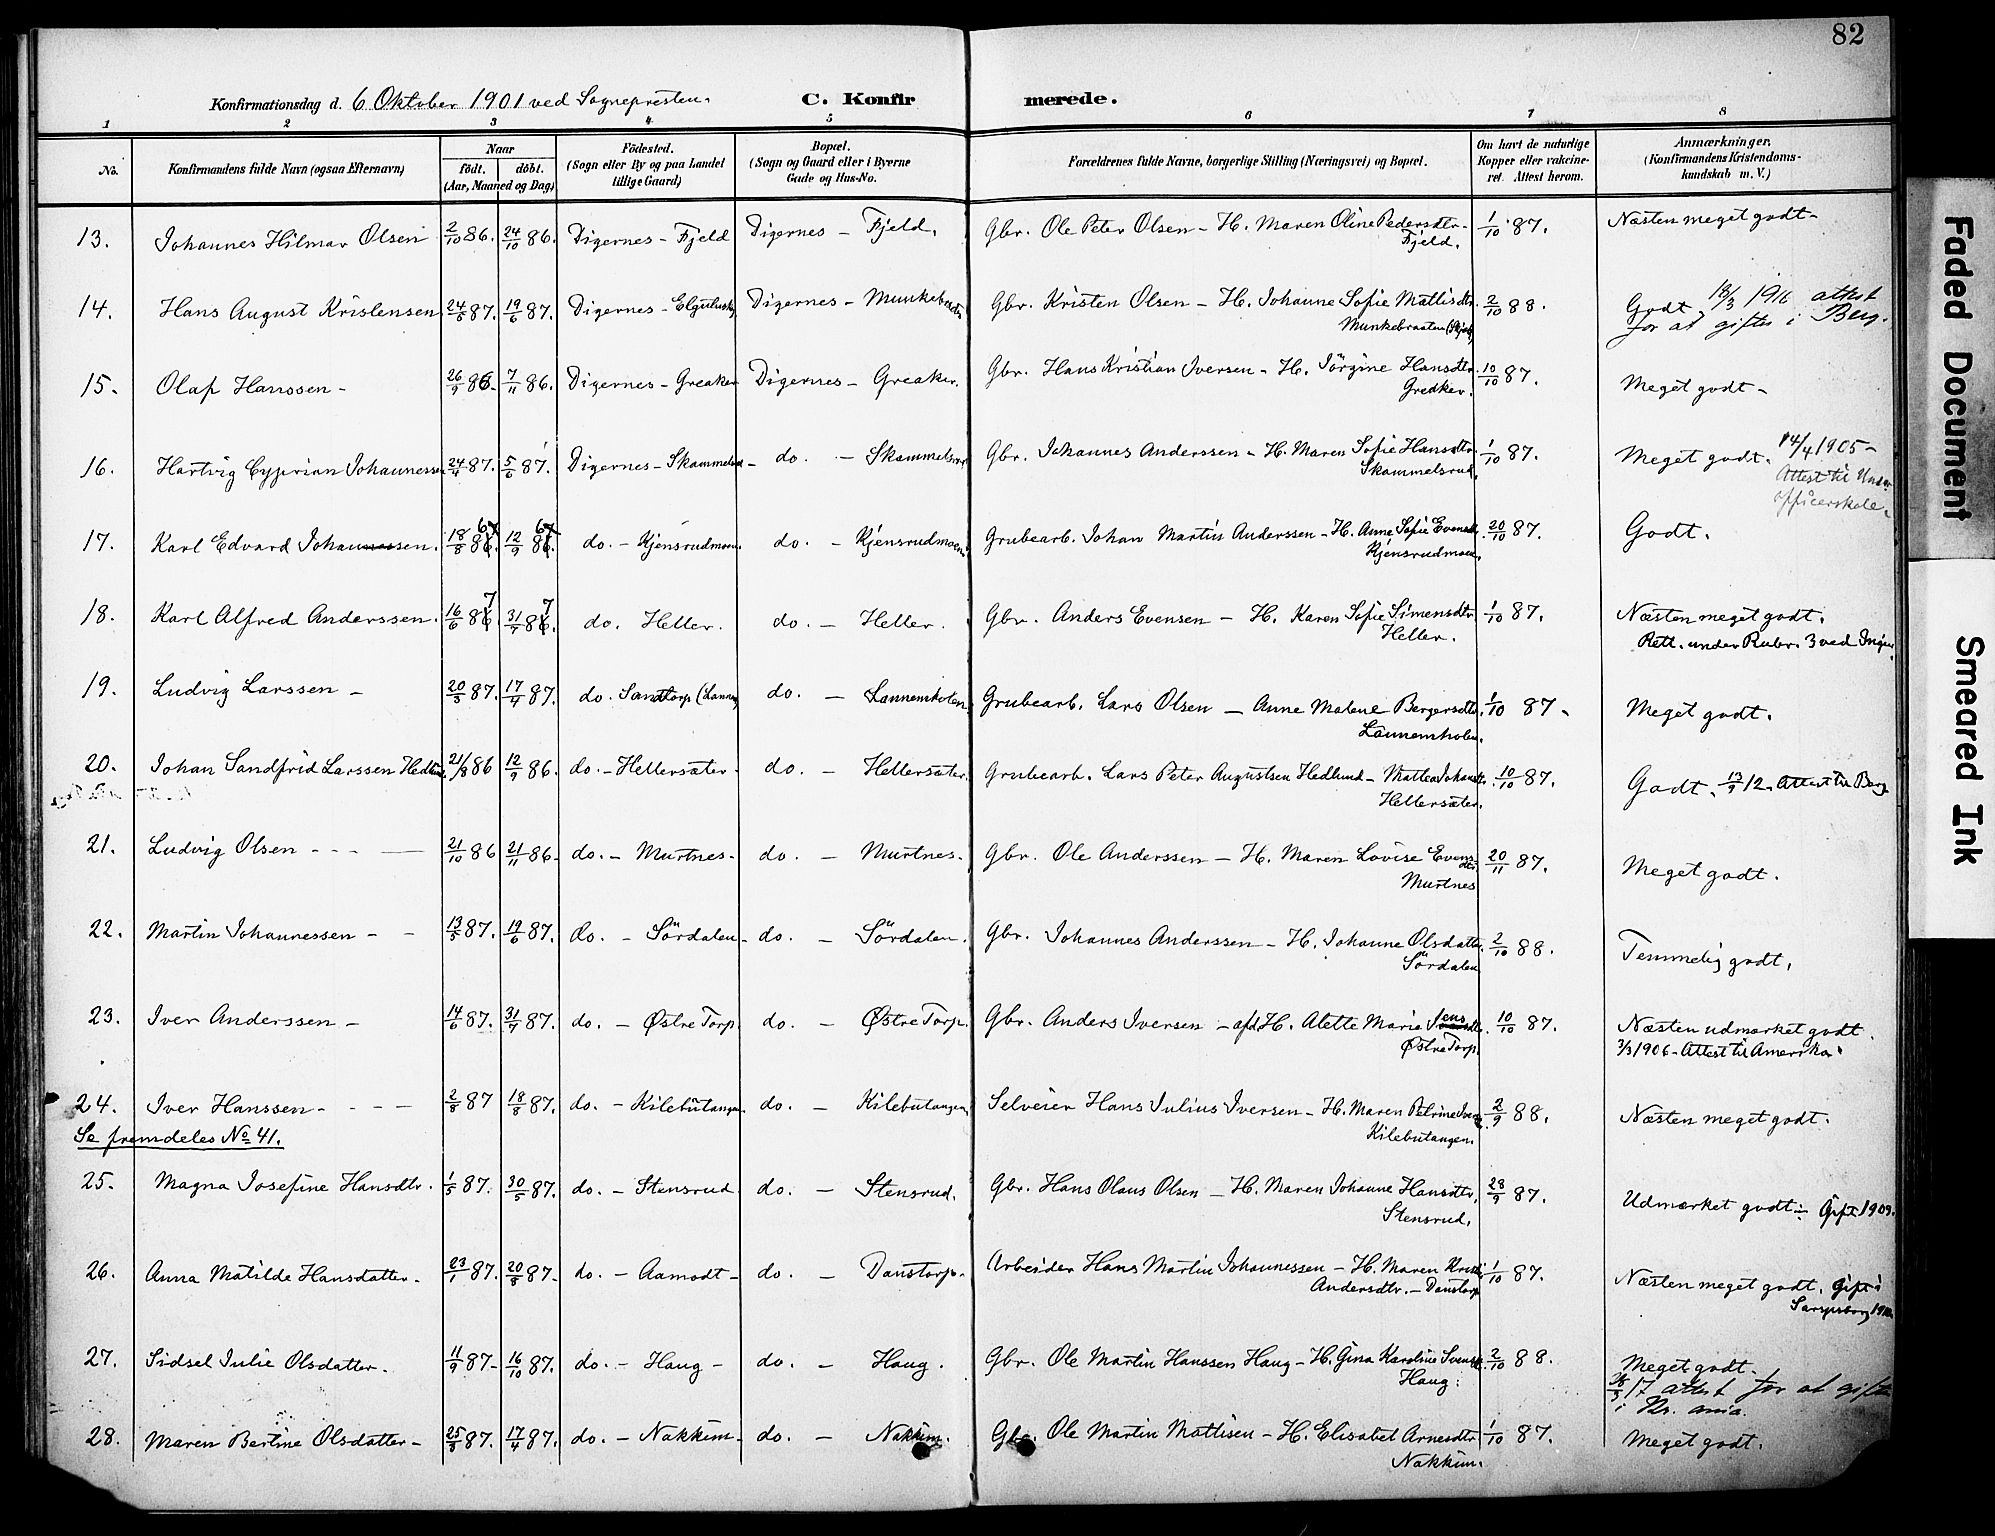 82
Konfirmationsdag d. 6 Oktober 1901 ved Sognepresten. C. Konfirmerede.
1 2 3 4. 5 6 7 8
No. Konfirmandens fulde Navn (ogsaa Efternavn) Naar født. døbt. (Aar, Maaned og Dag) Fødested. (Sogn eller By og paa Landet tillige Gaard) Bopæl. (Sogn og Gaard eller i Byerne Gade og Hus-No. Forældrenes fulde Navne, borgerlige Stilling (Næringsvei) og Bopæl. Om havt de naturlige Kopper eller vakcineret. Attest herom. Anmærkninger. (Konfirmandens Kristendomskundskab m. V.)
13. Johannes Hilmar Olsen 2/10 86. 24/10 86. Digernes - Fjeld Digernes - Fjeld. Gbr. Ole Peter Olsen - H. Maren Oline Pedersdtr. 1/10 87. Næsten meget godt -
Fjeld.
14. Hans August Kristensen 24/5 87. 19/6 87. Digernes - Digernes - Munkebraaten Gbr. Kristen Olsen - H. Johanne Sofie Mattisdtr. 2/10 88. Godt. 18/3 1916 attest
Munkebraaten for at giftes i Berg.
15. Olaf Hanssen - 26/9 86. 7/11 86. Digernes - Greaker Digernes - Greaker. Gbr. Hans Kristian Iversen - H. Jörgine Hansdtr. 10/10 87. Meget godt -
Greaker.
16. Hartvig Cyprian Johannessen 24/4 87. 5/6 87. Digernes - Skammelsrud - do. - Skammelsrud Gbr. Johannes Anderssen - H. Maren Sofie Hansdtr. 1/10 87. Meget godt. 14/4 1905 -
Skammelsrud. Attest til Under
officerskole.
17. Karl Edvard Johansen. 18/8 87. 12/9 87. do. - Kjensrudmoen. do. - Kjensrudmoen Grubearb. Johan Martin Anderssen - H. Anne Sofie Evensdtr. 20/10 87. Godt.
Kjensrudmoen.
18. Karl Alfred Anderssen. 16/6 87. 31/7 87. do. Heller. do. - Heller. Gbr. Anders Evensen - H. Karen Sofie Simensdtr 1/10 87. Næsten meget godt.
Heller. Rett. under Rubr. 3 ved
19. Ludvig Larssen - 20/3 87. 17/4 87. do. Sandtorp do. - Lannemholen. Grubearb. Lars Olsen - Anne Malene Bergersdtr. 1/10 87 - Meget godt.
Lannemholen.
20. Johan Sandfrid Larssen Hedlund 21/8 86 12/9 86. do. - Hellersæter. do. - Hellersæter. Grubearb. Lars Peter Augustsen Hedlund - Mattea Johansdtr. 10/10 87. Godt. 13/9 12. Attest til Berg
Hellersæter.
21. Ludvig Olsen - - - 21/10 86 21/11 86. do. - Murtnes. do. - Murtnes. Gbr. Ole Anderssen - H. Maren Lovise Evensdtr. 20/11 87. Meget godt.
Murtnes
22. Martin Johannessen - - 13/5 87. 19/6 87. do. - Sördalen. do. - Sördalen. Gbr. Johannes Anderssen - H. Johanne Olsdatter. 2/10 88. Temmelig godt.
Sördalen
23. Iver Anderssen - 14/6 87. 31/7 87. do. - Østre Torp. do. - Østre Torp. Gbr. Anders Iversen - afd H. Alette Marie 10/10 87. Næsten udmærket godt.
Østre Torp. 3/3 1906 - Attest til Amerika.
24. Iver Hanssen - - - - 2/8 87 18/8 87. do. - Kilebutangen. do. - Kilebutangen Selveier Hans Julius Iversen - H. Maren Petrine 2/9 88. Næsten meget godt.
Se fremdeles No 41. Kilebutangen.
25. Magna Josefine Hansdtr. 1/5 87. 30/5 87. do. - Stensrud. do. - Stensrud. Gbr. Hans Olaus Olsen - H. Maren Johanne Hansdtr. 28/9 87. Udmærket godt Gift 1909.
Stensrud.
26. Anna Matilde Hansdatter. 23/1 87. 20/3 87 - do. - Aamodt - do. - Danstorp. Arbeider Hans Martin Johannessen - H. Maren 1/10 87. Næsten meget godt. gift i
Andersdtr. - Danstorp Sarpsborg
27. Sidsel Julie Olsdatter. 11/9 87 - 16/10 87. do. - Haug - do. - Haug. Gbr. Ole Martin Hanssen Haug - H. Gina Karoline 2/10 88. Meget godt.
Haug. 17 attest for at giftes
i Kr.ania.
28. Maren Bertine Olsdatter - 25/3 87. 17/4 87. do. - Nakkim. do. - Nakkim. Gbr. Ole Martin Mattisen - H. Elisabet Arnesdtr 1/10 87. Meget godt.
Nakkim.
Faded Document
Smeared Ink